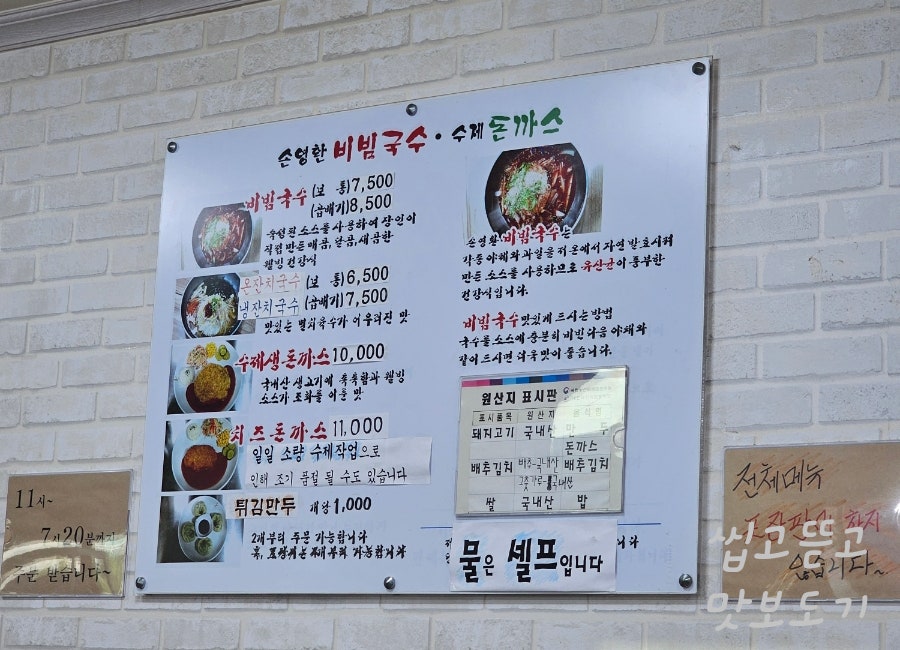 손영환 비빔국수 · 수제 돈까스
비빔국수 (보 통) 7,500
(곱배기) 8,500
숙성된 소스를 사용하여 장인이
직접 만든 매콤, 달콤, 새콤한
웰빙 건강식
온잔치국수 (보 통) 6,500
냉잔치국수 (곱배기) 7,500
맛있는 멸치육수가 어우러진 맛
수제생돈까스 10,000
국내산 생고기에 촉촉함과 웰빙
소스가 조화를 이룬 맛
치즈돈까스 11,000
일일 소량 수제작업으로
인해 조기 품절 될 수도 있습니다
튀김만두 개당 1,000
2개부터 주문 가능합니다
손영환 비빔국수는
각종 야채와 과일을 저온에서 자연 발효시켜
만든 소스를 사용하므로 유산균이 풍부한
건강식입니다.
비빔국수 맛있게 드시는 방법
국수를 소스에 충분히 비빈 다음 야채와
같이 드시면 더욱 맛이 좋습니다.
원산지 표시판
표시품목 원산지
돼지고기 국내산 만 두
돈까스
배추김치 배추-국내산 배추김치
고춧가루-국내산
쌀 국내산 밥
물은 셀프입니다
11시~
7시20분까지
주문 받습니다~
전체메뉴
않습니다~
씹고뜯고
맛보도기